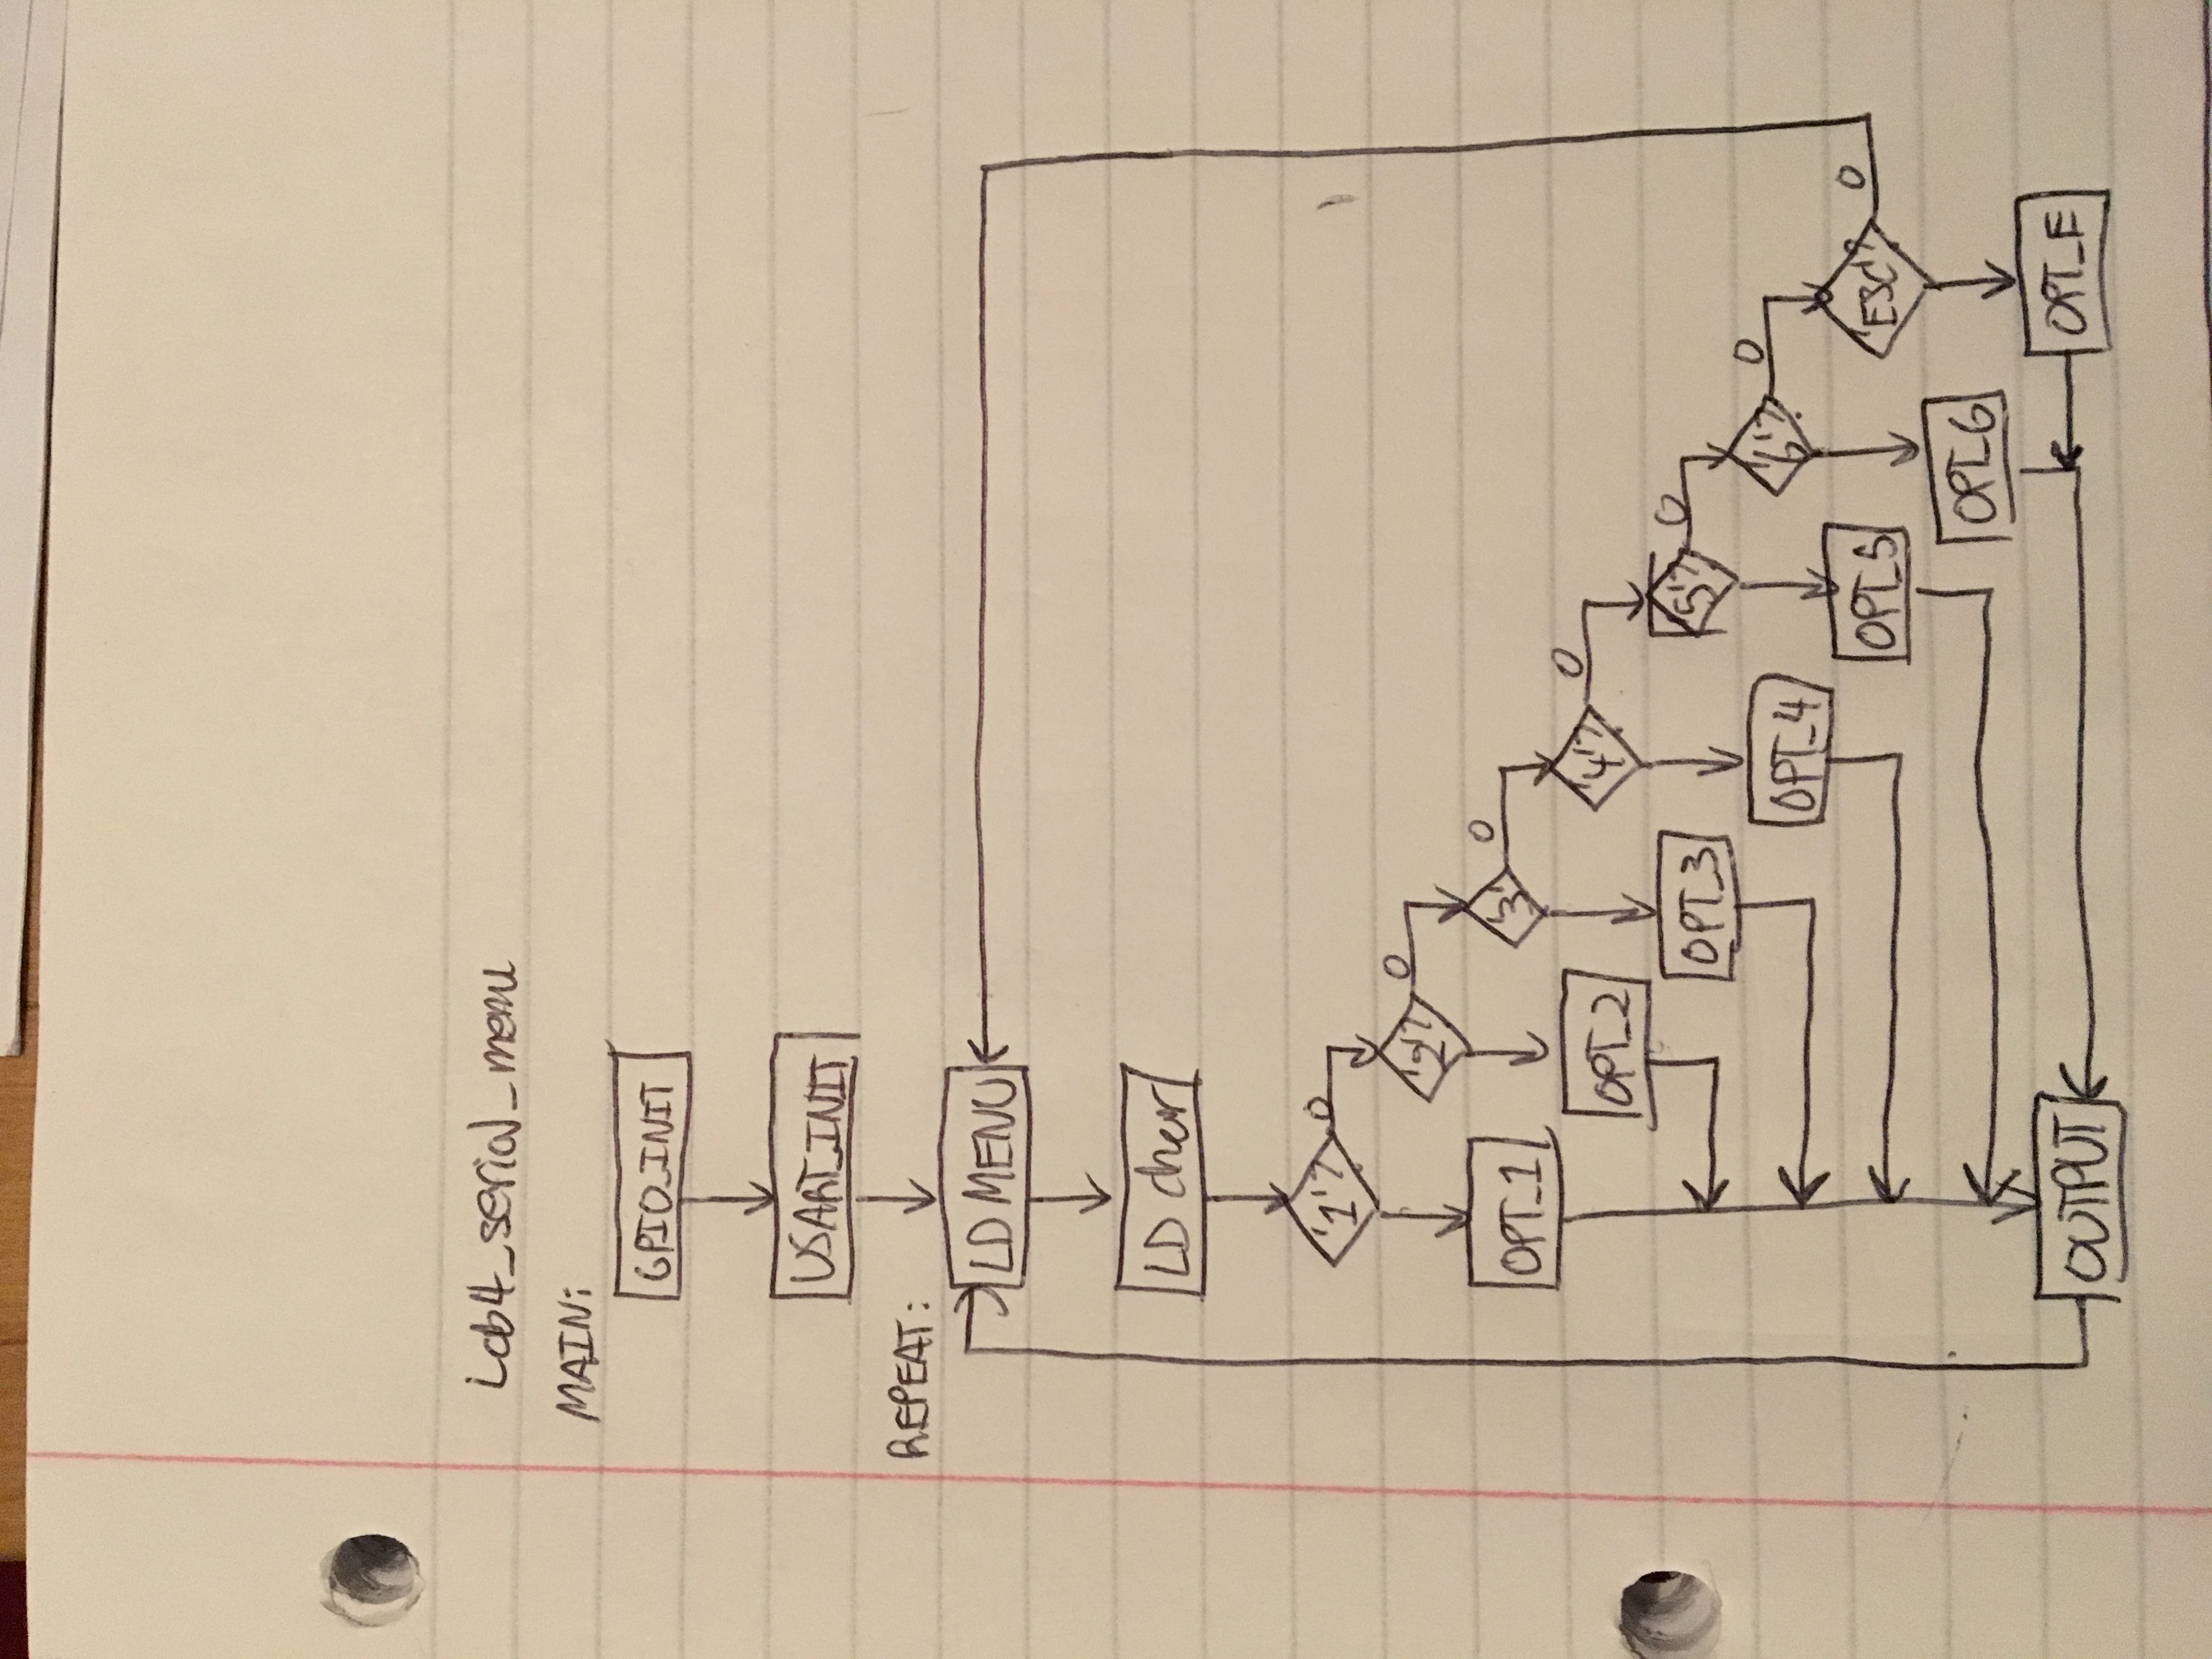 Lab4_serial_menu
MAIN:
GPIO_INIT
USART_INIT
REPEAT:
LD MENU
LD char
'1'? 0
'2'? 0
'3' 0
OPT_1
'4'? 0
OPT_2
'5'? 0
OPT_3
'6'? 0
OPT_4
'ESC'? 0
OPT_5
OPT_6
OPT_E
OUTPUT